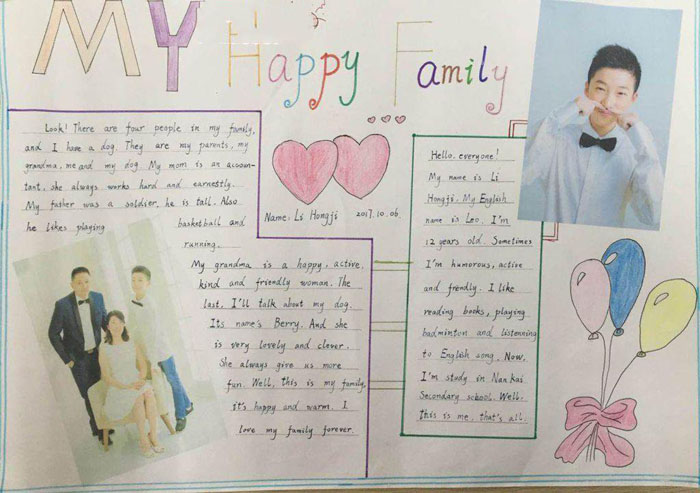 MY Happy Family
Look! There are four people in my family,
and I have a dog. They are my parents, my
grandma, me and my dog. My mom is an accoun-
tant, she always works hard and earnestly.
My father was a soldier, he is tall. Also
he likes playing basketball and
running.
My grandma is a happy, active,
kind and friendly woman. The
last, I'll talk about my dog.
Its name's Berry. And she
is very lovely and clever.
She always give us more
fun. Well, this is my family,
it's happy and warm. I
love my family forever.
Name: Li Hongji 2017.10.06
Hello, everyone!
My name is Li
Hongji. My English
name is Leo. I'm
12 years old. Sometimes
I'm humorous, active
and frendly. I like
reading books, playing
badminton and listenning
to English song. Now,
I'm study in Nan Kai
Secondary school. Well,
this is me, that's all.